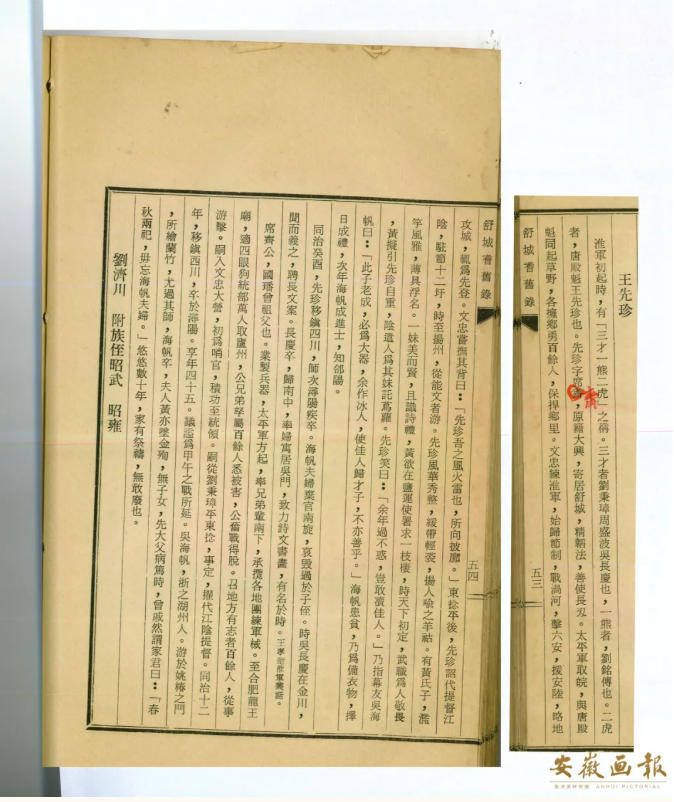 王先珍
淮軍初起時，有「三才一熊二虎」之稱。三才者劉秉璋周盛波吳長慶也，一熊者，劉銘傳也。二虎
者，唐殿魁王先珍也。先珍字席 齊，原籍大興，寄居舒城，精韜法，善使長刃。太平軍取皖，與唐殿
魁同起草野，各擁鄉勇百餘人，保捍鄉里。文忠練淮軍，始歸節制，戰渦河，擊六安，援安陸，略地
舒城耆舊錄
五三
舒城耆舊錄
五四
攻城，輒爲先登。文忠嘗撫其背曰：「先珍吾之風火雷也，所向披靡。」東捻平後，先珍詔代提督江
陰，駐節十二圩，時至揚州，從能文者游。先珍風華秀整，緩帶輕裘，揚人喩之羊祜。有黃氏子，濫
竽風雅，薄具浮名。一妹美而賢，且識詩禮，黃欲在鹽運使署求一枝棲，時天下初定，武職爲人敬畏
，黃擬引先珍自重，陰遣人爲其妹託蔦蘿。先珍笑曰：「余年過不惑，豈敢瀆佳人。」乃指幕友吳海
帆曰：「此子老成，必爲大器，余作冰人，使佳人歸才子，不亦善乎。」海帆患貧，乃爲備衣物，擇
日成禮，次年海帆成進士，知郃陽。
同治癸酉，先珍移鎮四川，師次潯陽疾卒。海帆夫婦棄官南旋，哀毀過於子侄。時吳長慶在金川，
聞而義之，聘長文案。長慶卒，歸南中，率婦寓居吳門，致力詩文書畫，有名於時。
席齊公，國璠曾祖父也。業製兵器，太平軍方起，率兄弟輩南下，承攬各地團練軍械。至合肥龍王
廟，適四眼狗統部萬人取廬州，公兄弟孥屬百餘人悉被害，公奮戰得脫。召地方有志者百餘人，從事
游擊。嗣入文忠大營，初爲哨官，積功至統領。嗣從劉秉璋平東捻，事定，擢代江陰提督。同治十二
年，移鎮西川，卒於潯陽。享年四十五。議謚爲甲午之戰所延。吳海帆，浙之湖州人。游於姚椿之門
，所繪蘭竹，尤過其師，海帆卒，夫人黃亦墜金殉，無子女，先大父病篤時，曾戚然謂家君曰：「春
秋兩祀，毋忘海帆夫婦。」悠悠數十年，家有祭禱，無敢廢也。
劉濟川 附族侄昭武 昭雍
安徽画报
ANHUI PICTORIAL